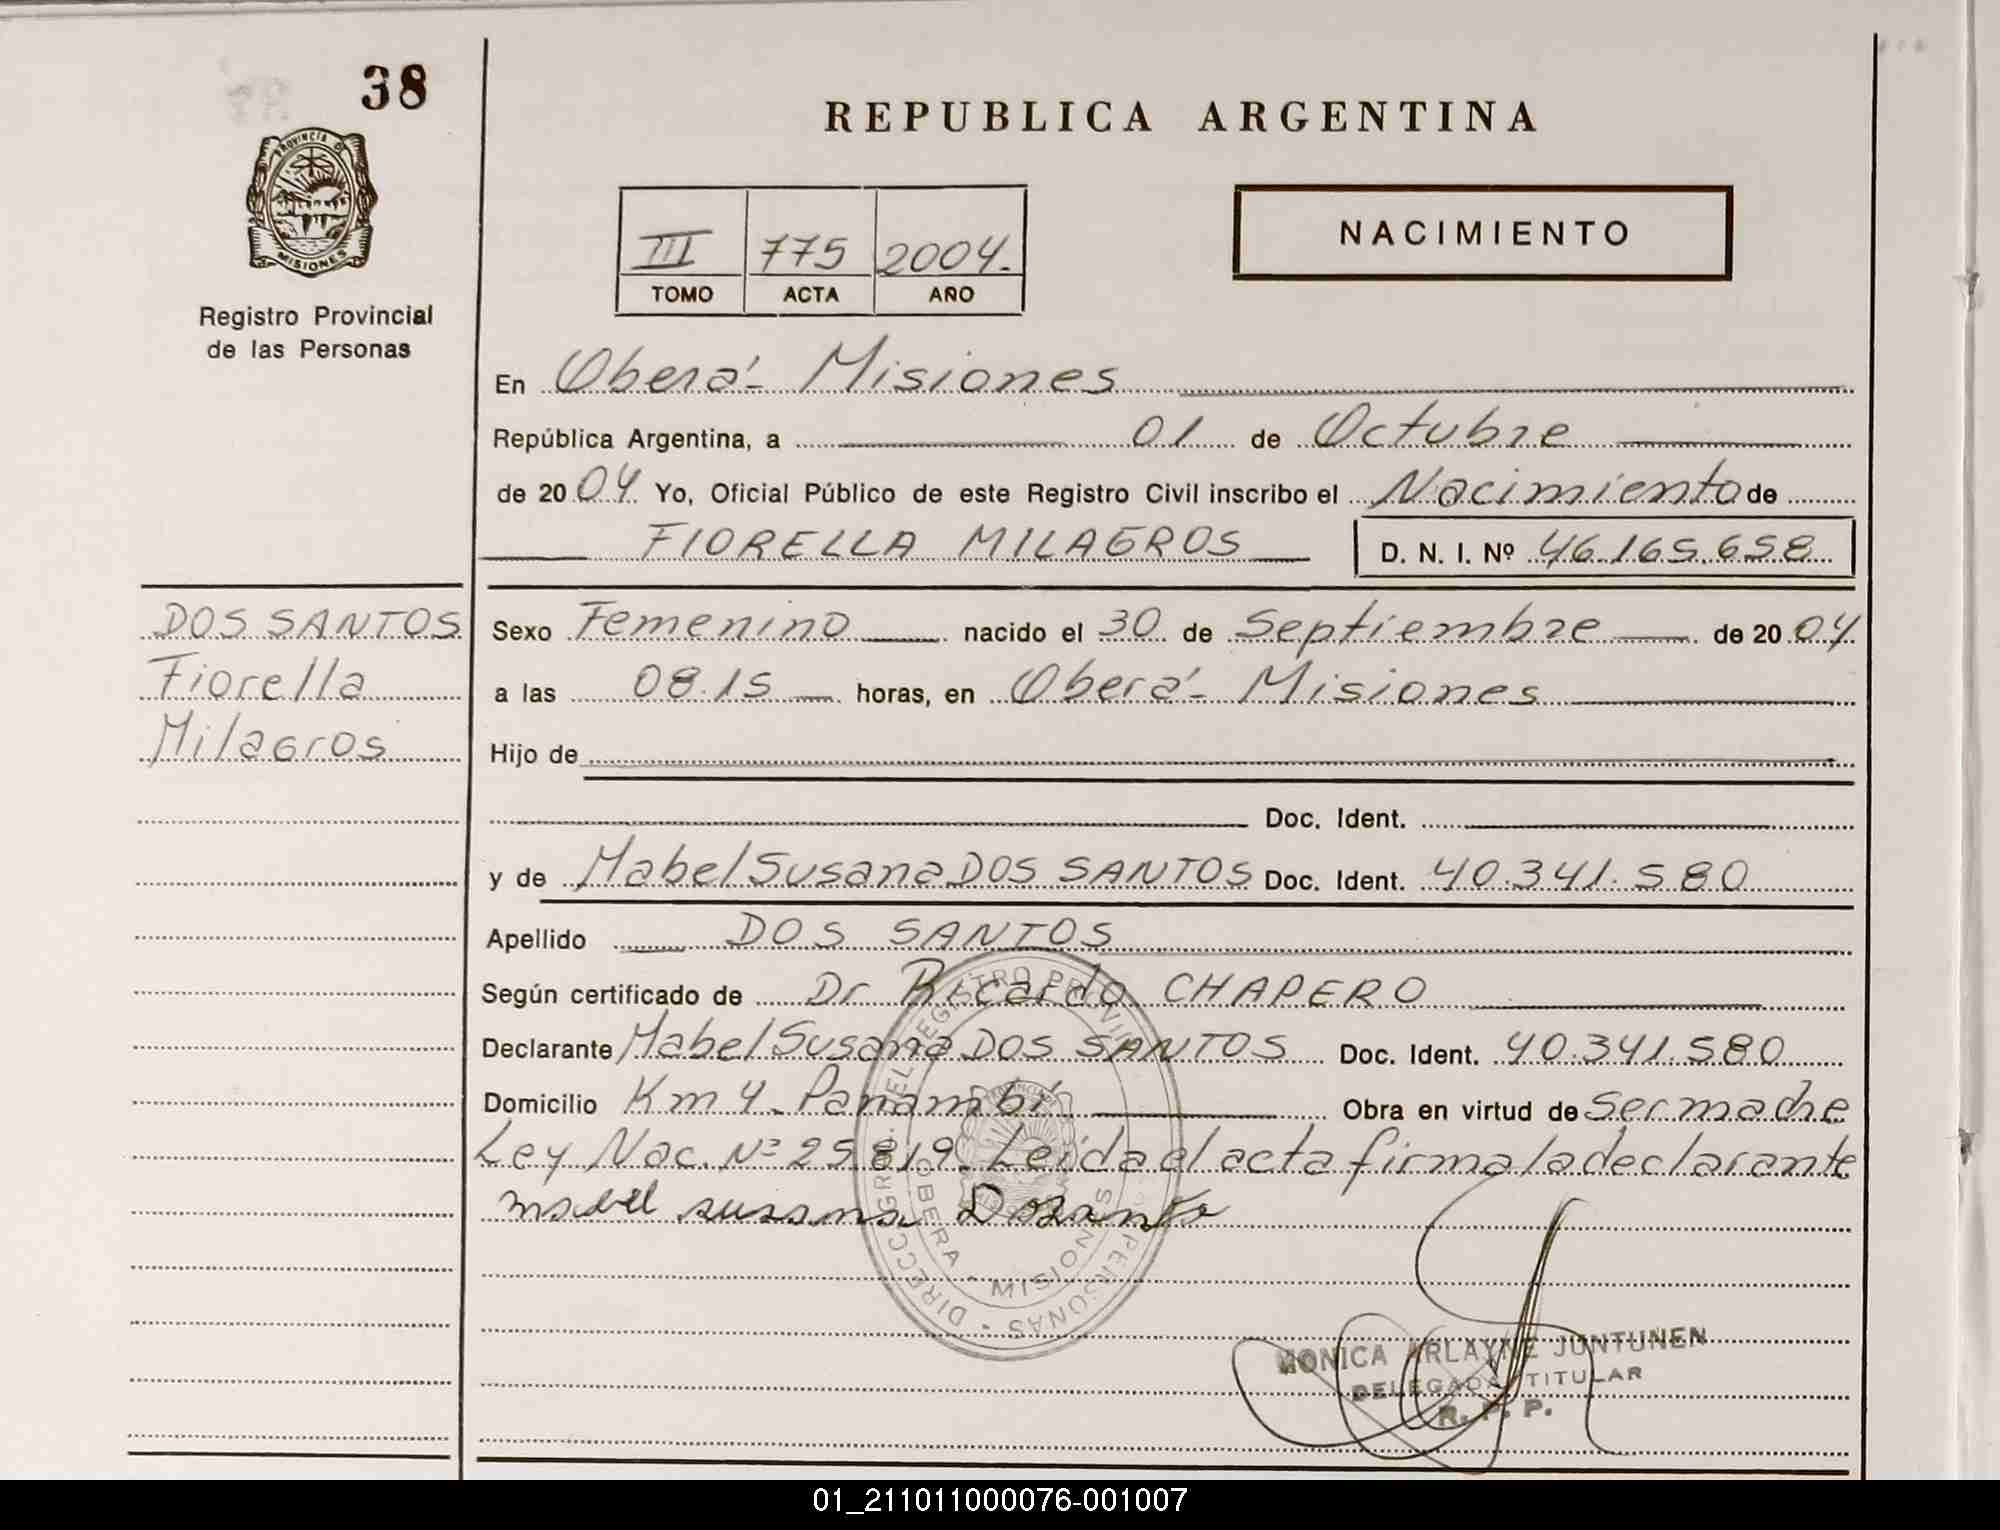 38
PROVINCIA DE
MISIONES
Registro Provincial
de las Personas
REPUBLICA ARGENTINA
III 775 2004.
TOMO ACTA AÑO
NACIMIENTO
En Oberá - Misiones
República Argentina, a 01 de Octubre
de 2004 Yo, Oficial Público de este Registro Civil inscribo el Nacimiento de
FIORELLA MILAGROS D. N. I. Nº 46.165.658
DOS SANTOS
Fiorella
Milagros
Sexo Femenino nacido el 30 de Septiembre de 2004
a las 08.15 horas, en Oberá - Misiones
Hijo de
Doc. Ident.
y de Mabel Susana DOS SANTOS Doc. Ident. 40.341.580
Apellido DOS SANTOS
Según certificado de Dr Ricardo CHAPERO
Declarante Mabel Susana DOS SANTOS Doc. Ident. 40.341.580
Domicilio Km 4. Panambí Obra en virtud de Ser madre
Ley Nac. Nº 25.819. Leída el acta firma la declarante
mabel susana
OBERA - MISIONES
MONICA ARLAYNE JUNTUNEN
DELEGADA TITULAR
R. P. P.
01_211011000076-001007